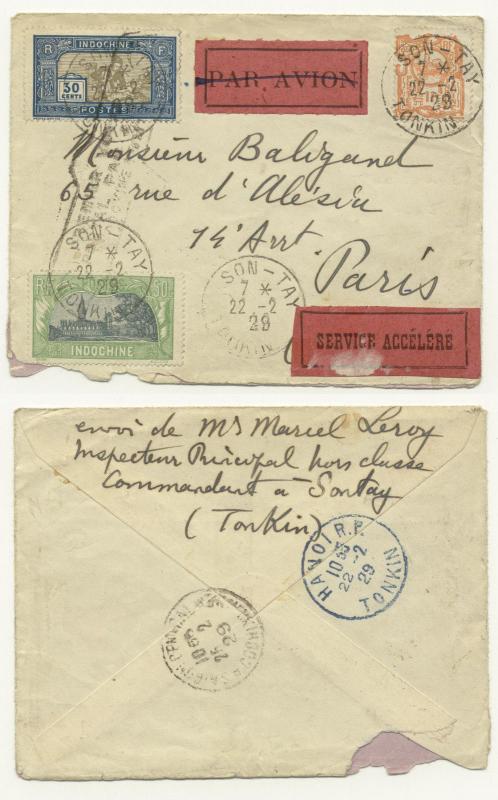 R INDOCHINE F
30
CENTS
POSTES
PAR AVION
SON-TAY
7 *
22 -2
29
TONKIN
Monsieur Baligand
65 rue d'Alésia
14e Arrt
Paris
SON-TAY
7 *
22 -2
29
TONKIN
SON-TAY
7 *
22 -2
29
TONKIN
INDOCHINE
SERVICE ACCÉLÉRÉ
envoi de Mr Marcel Leroy
Inspecteur Principal hors classe
Commandant à Sontay
(Tonkin)
HANOI R.P.
10 35
22 -2
29
TONKIN
25
2
29